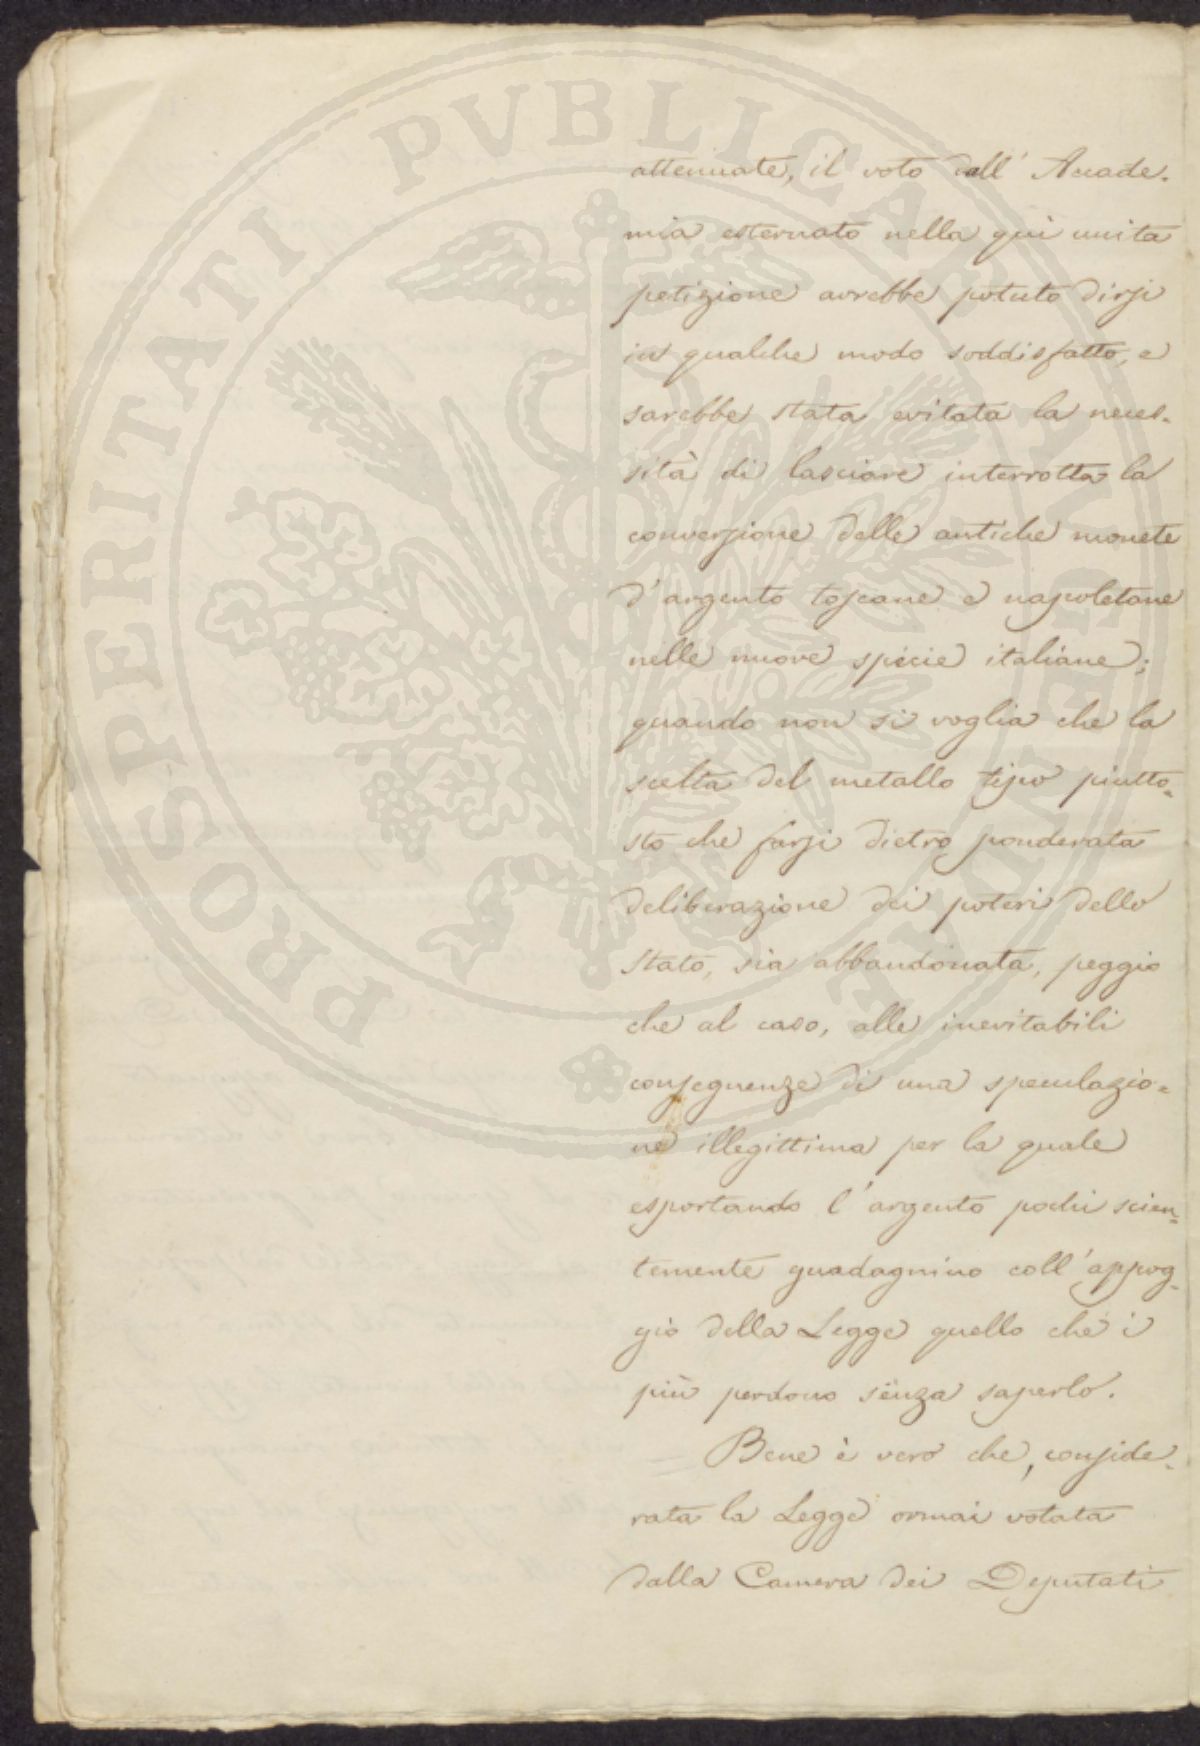 PROSPERITATI PVBLICAE AVGENDAE
attenuate, il voto dell' Accade-
mia esternato nella qui unita
petizione avrebbe potuto dirsi
in qualche modo soddisfatto, e
sarebbe stata evitata la neces-
sità di lasciare interrotta la
conversione delle antiche monete
d'argento toscane e napoletane
nelle nuove specie italiane;
quando non si voglia che la
scelta del metallo tipo piutto-
sto che farsi dietro ponderata
deliberazione dei poteri dello
Stato, sia abbandonata, peggio
che al caso, alle inevitabili
conseguenze di una speculazio-
ne illegittima per la quale
esportando l'argento pochi scien-
temente guadagnino coll'appog-
gio della Legge quello che i
più perdono senza saperlo.
Bene è vero che, conside-
rata la Legge ormai votata
dalla Camera dei Deputati